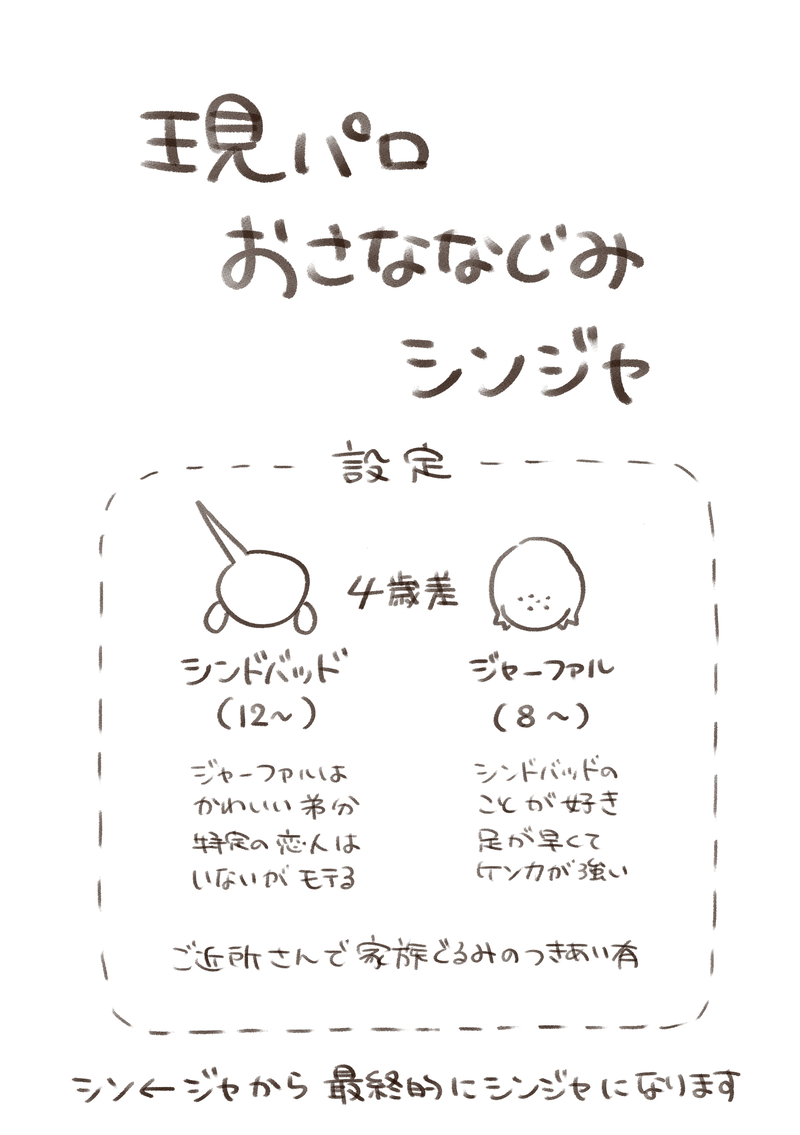 現パロ
おさななじみ
シンジャ
設定
4歳差
シンドバッド
(12~)
ジャーファルは
かわいい弟分
特定の恋人は
いないがモテる
ジャーファル
(8~)
シンドバッドの
ことが好き
足が早くて
ケンカが強い
ご近所さんで家族ぐるみのつきあい有
シン←ジャから最終的にシンジャになります